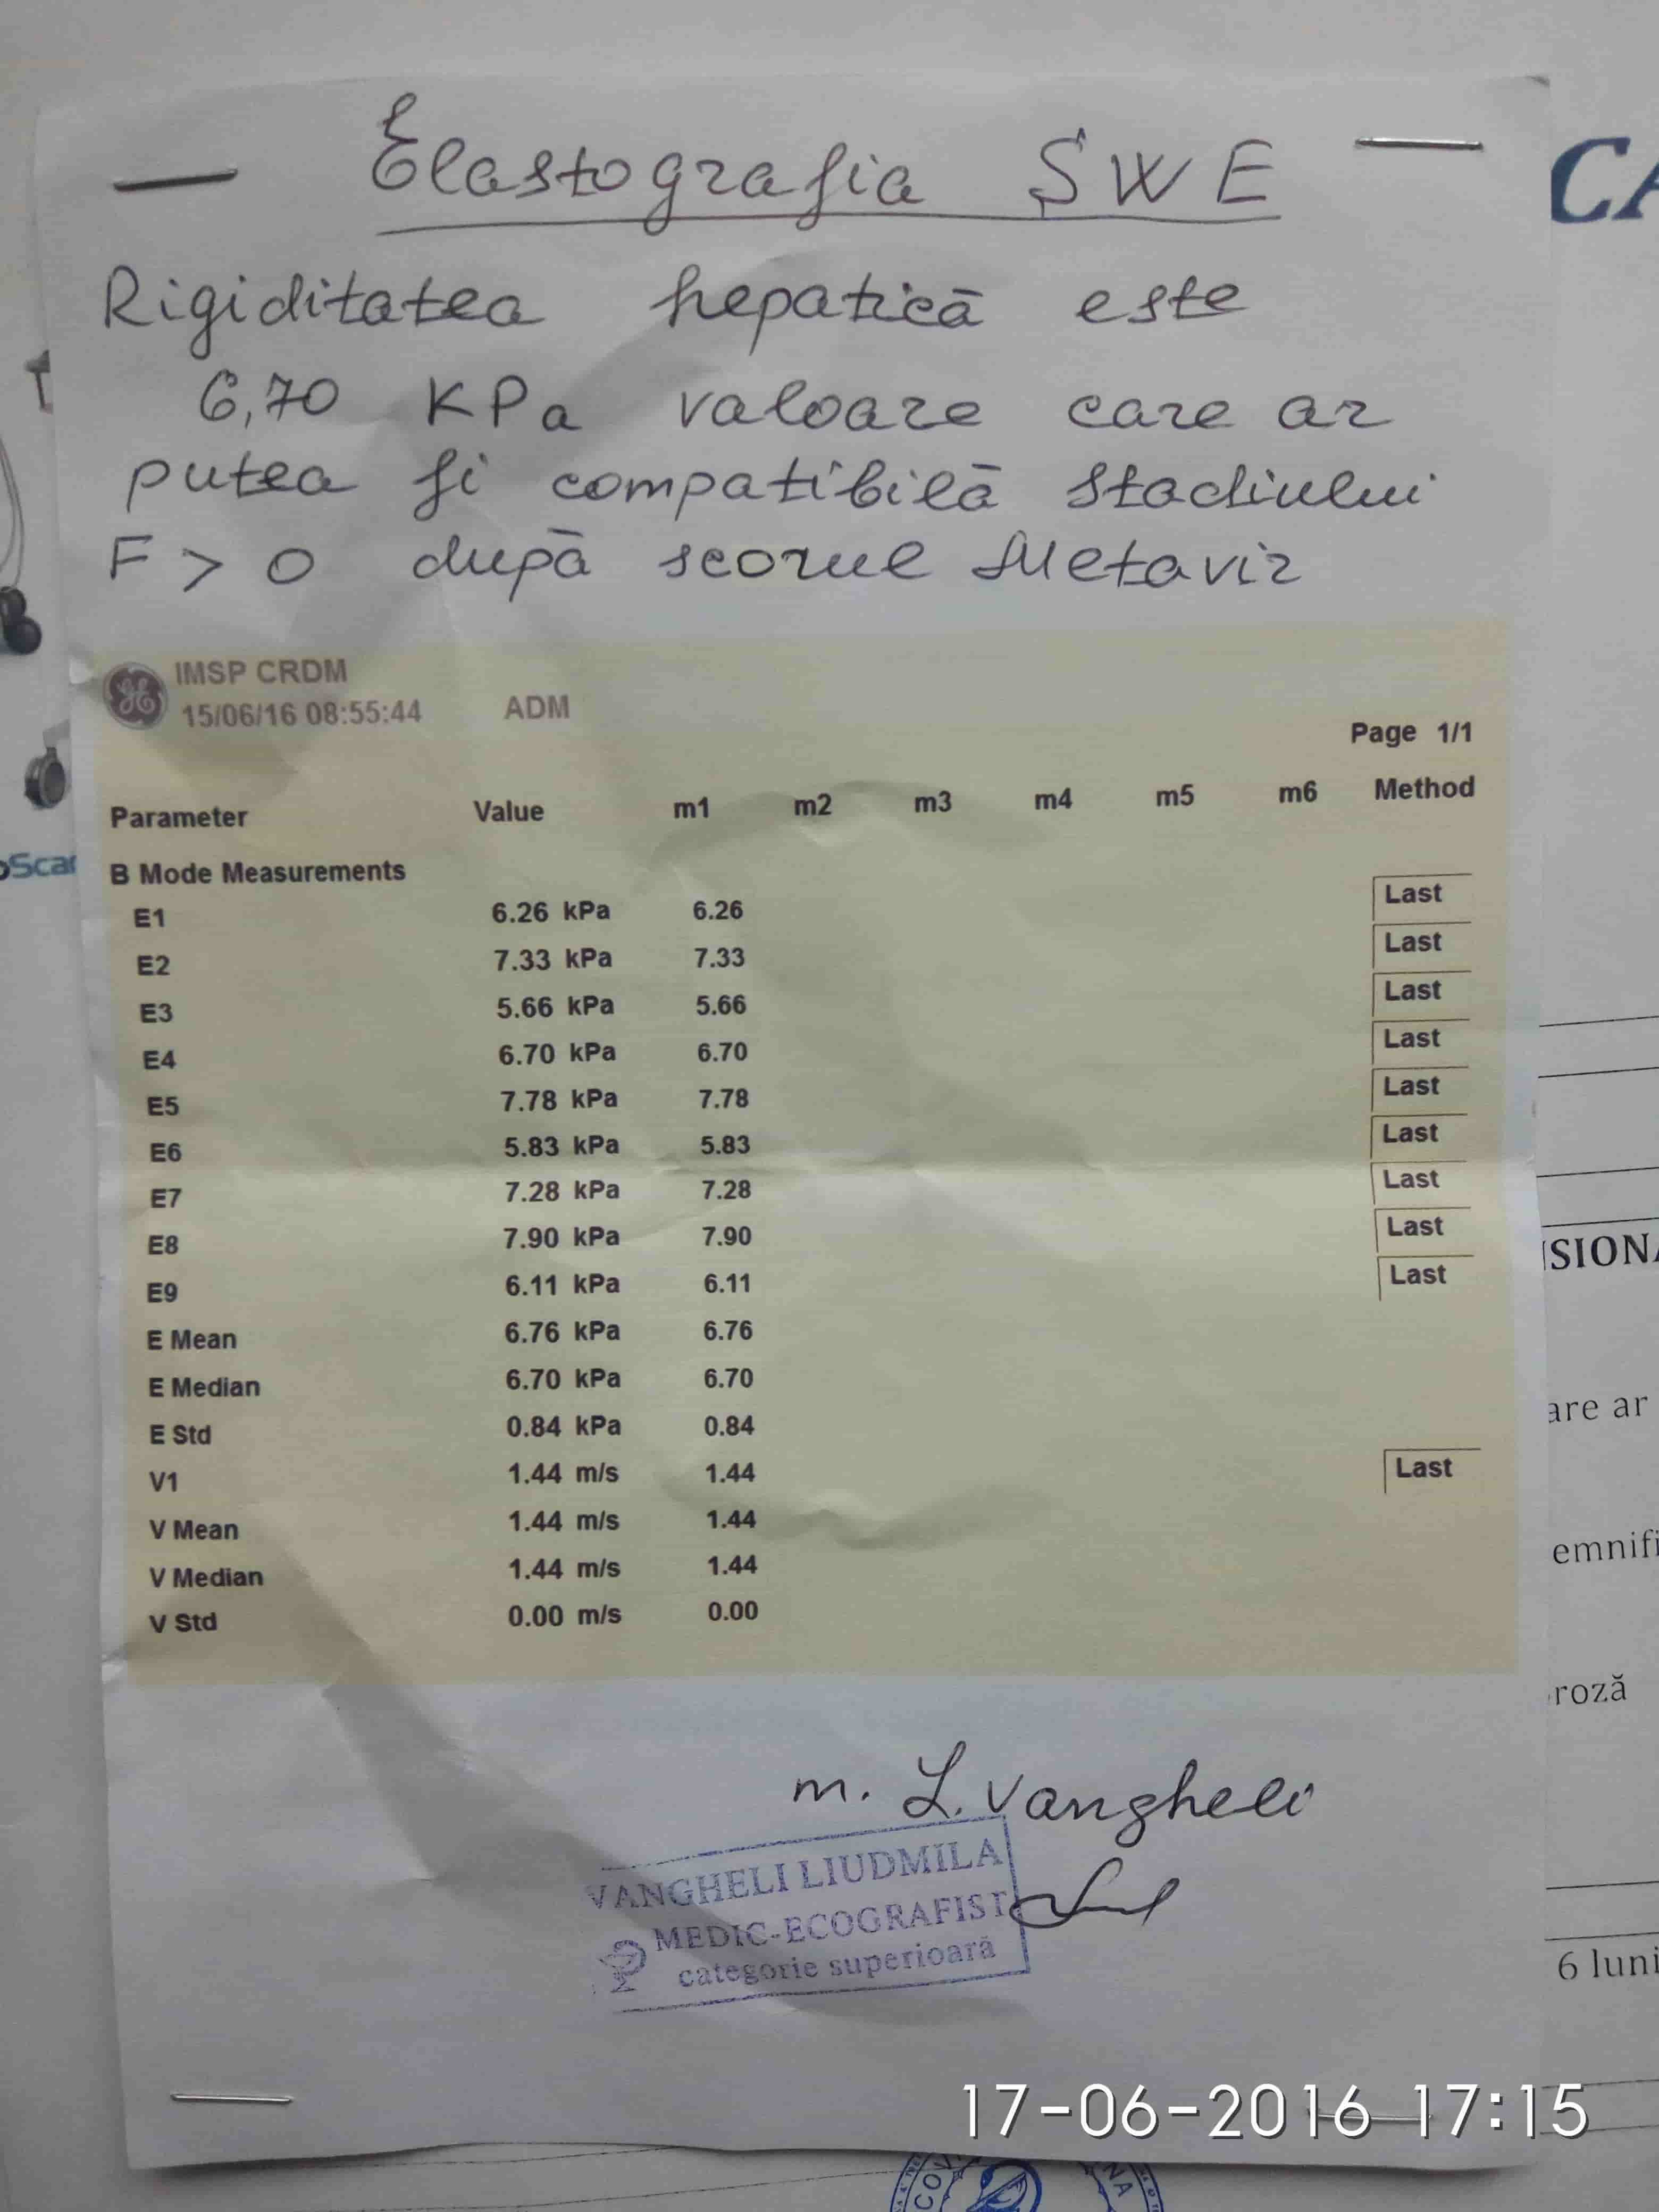 Elastografia SWE
CA
Rigiditatea hepatică este
6,70 KPa valoare care ar
putea fi compatibilă stadiului
F > 0 după scorul Metavir
IMSP CRDM
15/06/16 08:55:44 ADM
Page 1/1
Parameter Value m1 m2 m3 m4 m5 m6 Method
oScan
B Mode Measurements
E1 6.26 kPa 6.26 Last
E2 7.33 kPa 7.33 Last
E3 5.66 kPa 5.66 Last
E4 6.70 kPa 6.70 Last
E5 7.78 kPa 7.78 Last
E6 5.83 kPa 5.83 Last
E7 7.28 kPa 7.28 Last
E8 7.90 kPa 7.90 Last
E9 6.11 kPa 6.11 Last
SIONA
E Mean 6.76 kPa 6.76
E Median 6.70 kPa 6.70
are ar
E Std 0.84 kPa 0.84
V1 1.44 m/s 1.44 Last
V Mean 1.44 m/s 1.44
emnifi
V Median 1.44 m/s 1.44
V Std 0.00 m/s 0.00
roză
m. L. Vangheli
VANGHELI LIUDMILA
MEDIC-ECOGRAFIST
categorie superioară
6 luni
17-06-2016 17:15